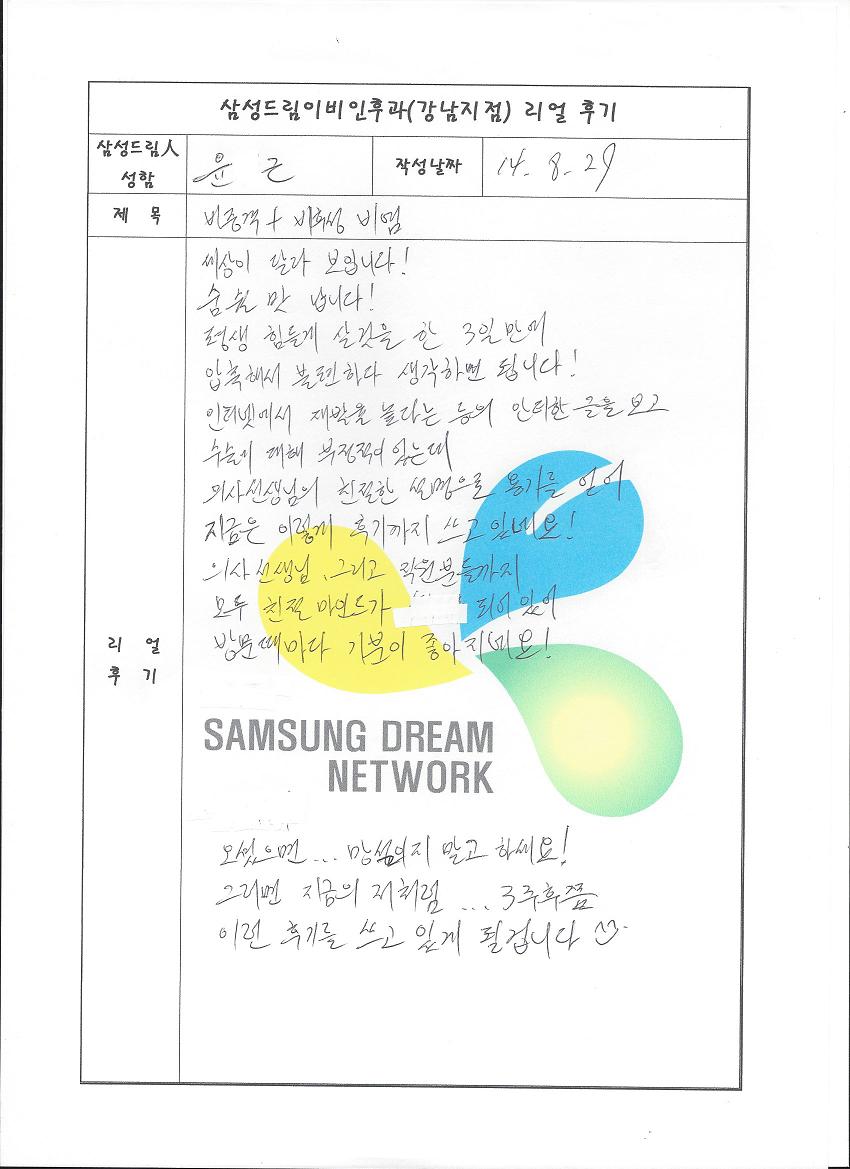 삼성드림이비인후과(강남지점) 리얼 후기
삼성드림人 성함
윤 근
작성날짜
14. 8. 29
제 목
비중격 + 비후성 비염
리 얼
후 기
세상이 달라 보입니다!
숨쉴 맛 납니다!
평생 힘들게 살것을 한 3일만에
압축해서 불편하다 생각하면 됩니다!
인터넷에서 재발율 높다는 등의 안티한 글을 보고
수술에 대해 부정적이었는데
의사선생님의 친절한 설명으로 용기를 얻어
지금은 이렇게 후기까지 쓰고 있네요!
의사선생님, 그리고 직원분들까지
모두 친절 마인드가 되어있어
방문때마다 기분이 좋아지네요!
SAMSUNG DREAM
NETWORK
오셨으면... 망설이지 말고 하세요!
그러면 지금의 저처럼 ... 3주후쯤
이런 후기를 쓰고 있게 될겁니다